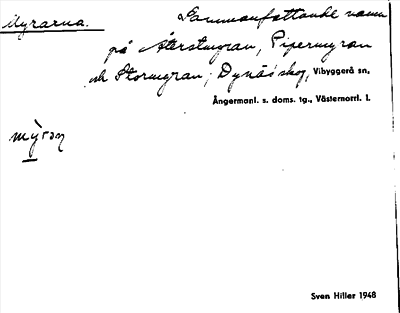 Myrarna. Sammanfattande namn
på Återstmyran, Pipermyran
och Stormyran, Dynäs skog, Vibyggerå sn,
Ångermanl. s. doms. tg., Västernorrl. l.
mỳran
Sven Hiller 1948